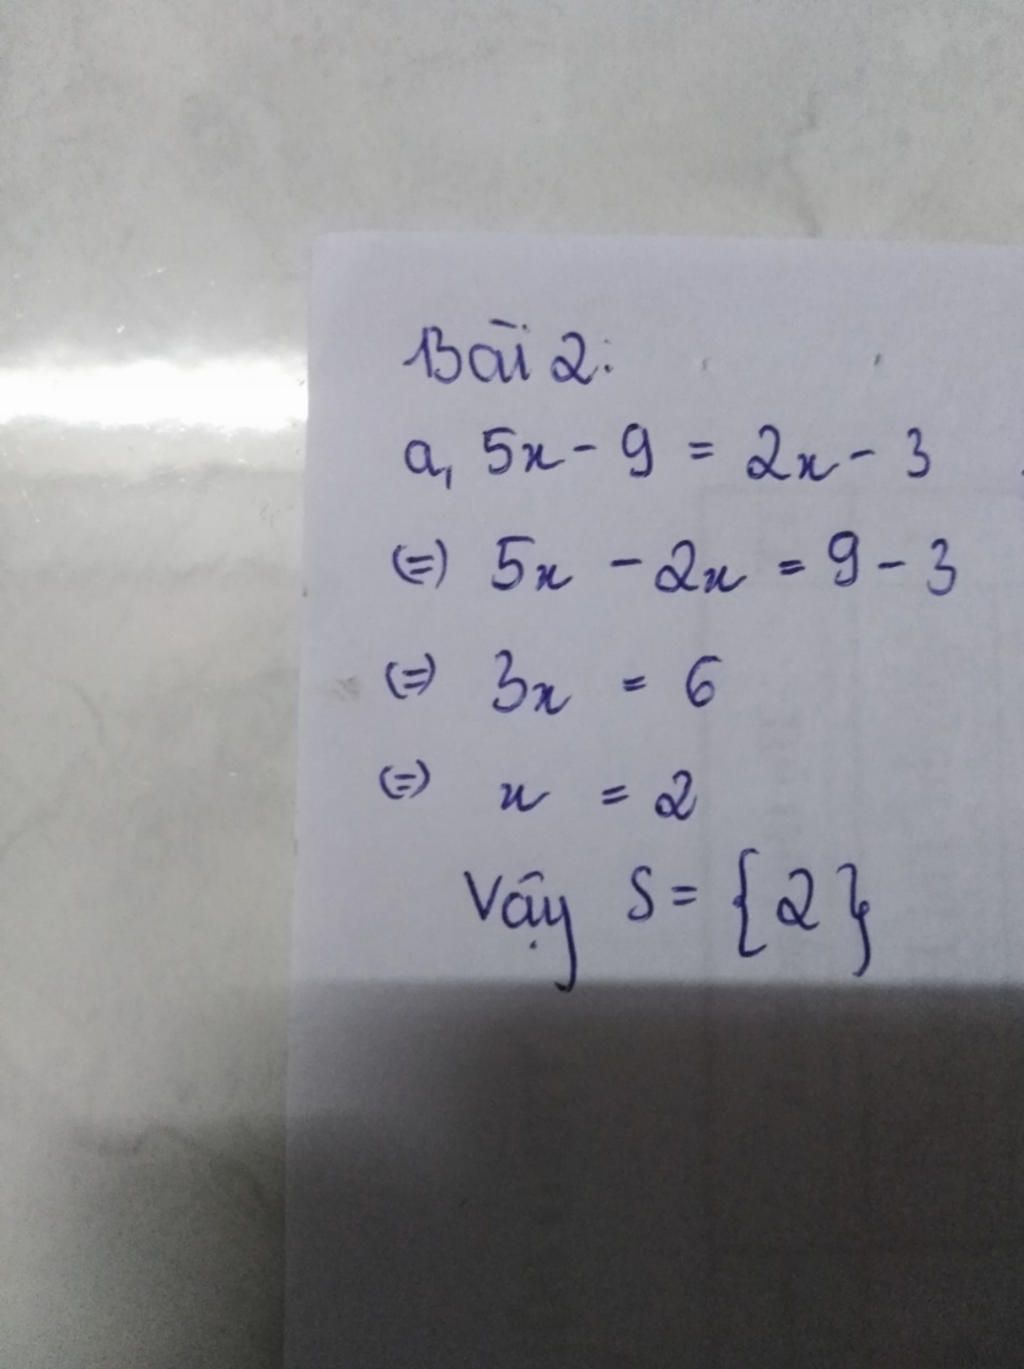 Bài 2:
a, 5x - 9 = 2x - 3
(=) 5x - 2x = 9 - 3
(=) 3x = 6
(=) x = 2
Vậy S = {2}